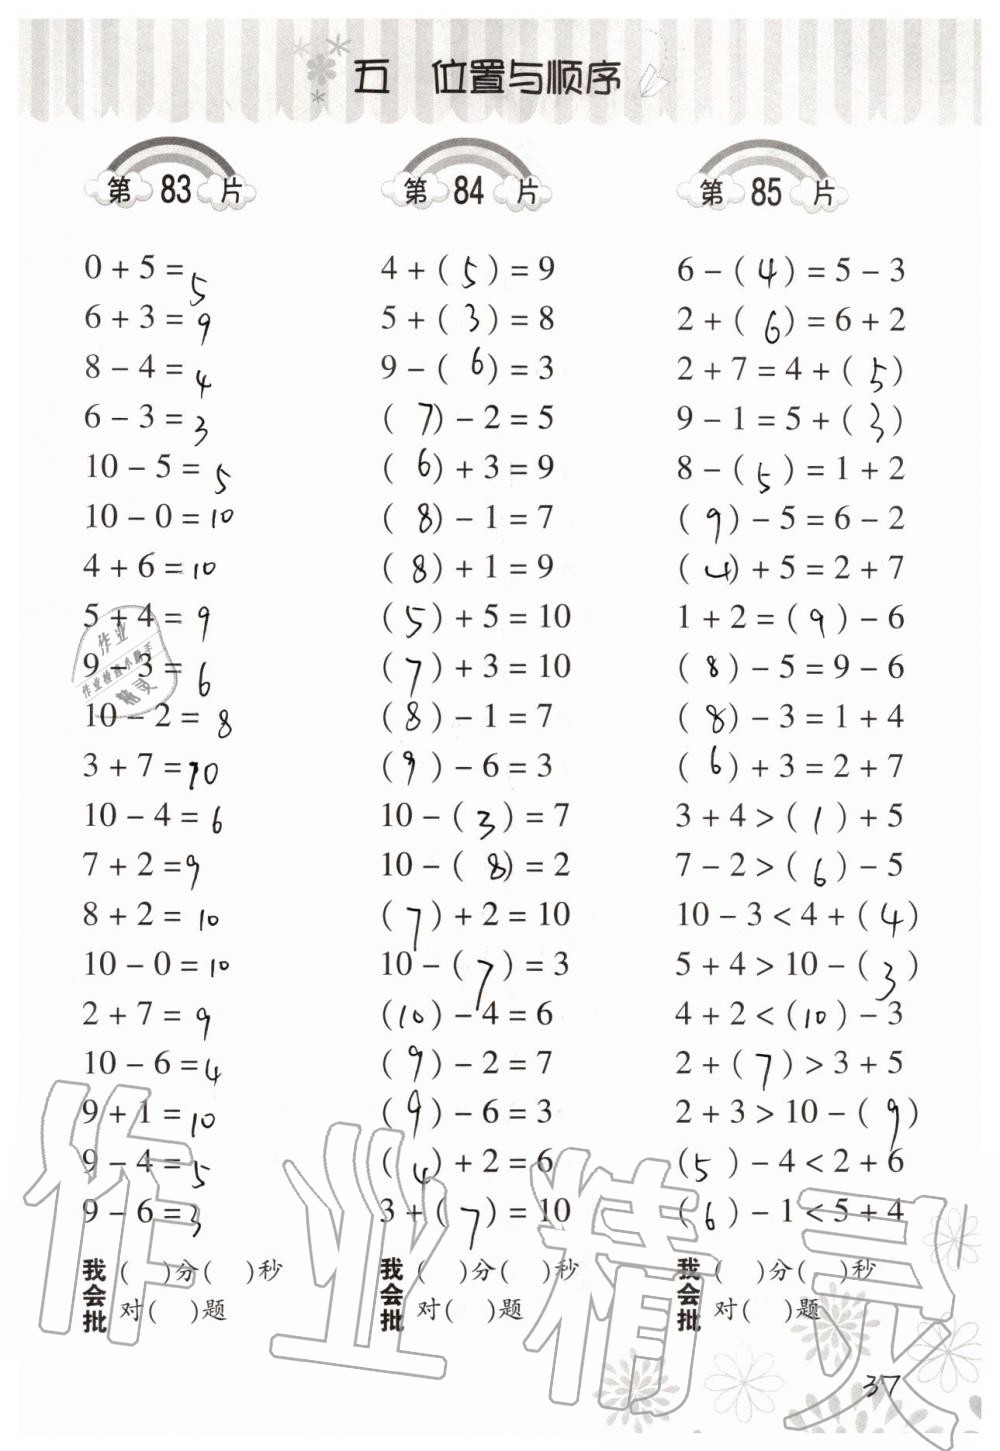 五 位置与顺序
第 83 片
0 + 5 = 5
6 + 3 = 9
8 - 4 = 4
6 - 3 = 3
10 - 5 = 5
10 - 0 = 10
4 + 6 = 10
5 + 4 = 9
9 - 3 = 6
10 - 2 = 8
3 + 7 = 10
10 - 4 = 6
7 + 2 = 9
8 + 2 = 10
10 - 0 = 10
2 + 7 = 9
10 - 6 = 4
9 + 1 = 10
9 - 4 = 5
9 - 6 = 3
我会批 ( )分( )秒
对( )题
第 84 片
4 + ( 5 ) = 9
5 + ( 3 ) = 8
9 - ( 6 ) = 3
( 7 ) - 2 = 5
( 6 ) + 3 = 9
( 8 ) - 1 = 7
( 8 ) + 1 = 9
( 5 ) + 5 = 10
( 7 ) + 3 = 10
( 8 ) - 1 = 7
( 9 ) - 6 = 3
10 - ( 3 ) = 7
10 - ( 8 ) = 2
( 7 ) + 2 = 10
10 - ( 7 ) = 3
( 10 ) - 4 = 6
( 9 ) - 2 = 7
( 9 ) - 6 = 3
( 4 ) + 2 = 6
3 + ( 7 ) = 10
我会批 ( )分( )秒
对( )题
第 85 片
6 - ( 4 ) = 5 - 3
2 + ( 6 ) = 6 + 2
2 + 7 = 4 + ( 5 )
9 - 1 = 5 + ( 3 )
8 - ( 5 ) = 1 + 2
( 9 ) - 5 = 6 - 2
( 4 ) + 5 = 2 + 7
1 + 2 = ( 9 ) - 6
( 8 ) - 5 = 9 - 6
( 8 ) - 3 = 1 + 4
( 6 ) + 3 = 2 + 7
3 + 4 > ( 1 ) + 5
7 - 2 > ( 6 ) - 5
10 - 3 < 4 + ( 4 )
5 + 4 > 10 - ( 3 )
4 + 2 < ( 10 ) - 3
2 + ( 7 ) > 3 + 5
2 + 3 > 10 - ( 9 )
( 5 ) - 4 < 2 + 6
( 6 ) - 1 < 5 + 4
我会批 ( )分( )秒
对( )题
37
作业
作业检查小助手
精灵
作业精灵